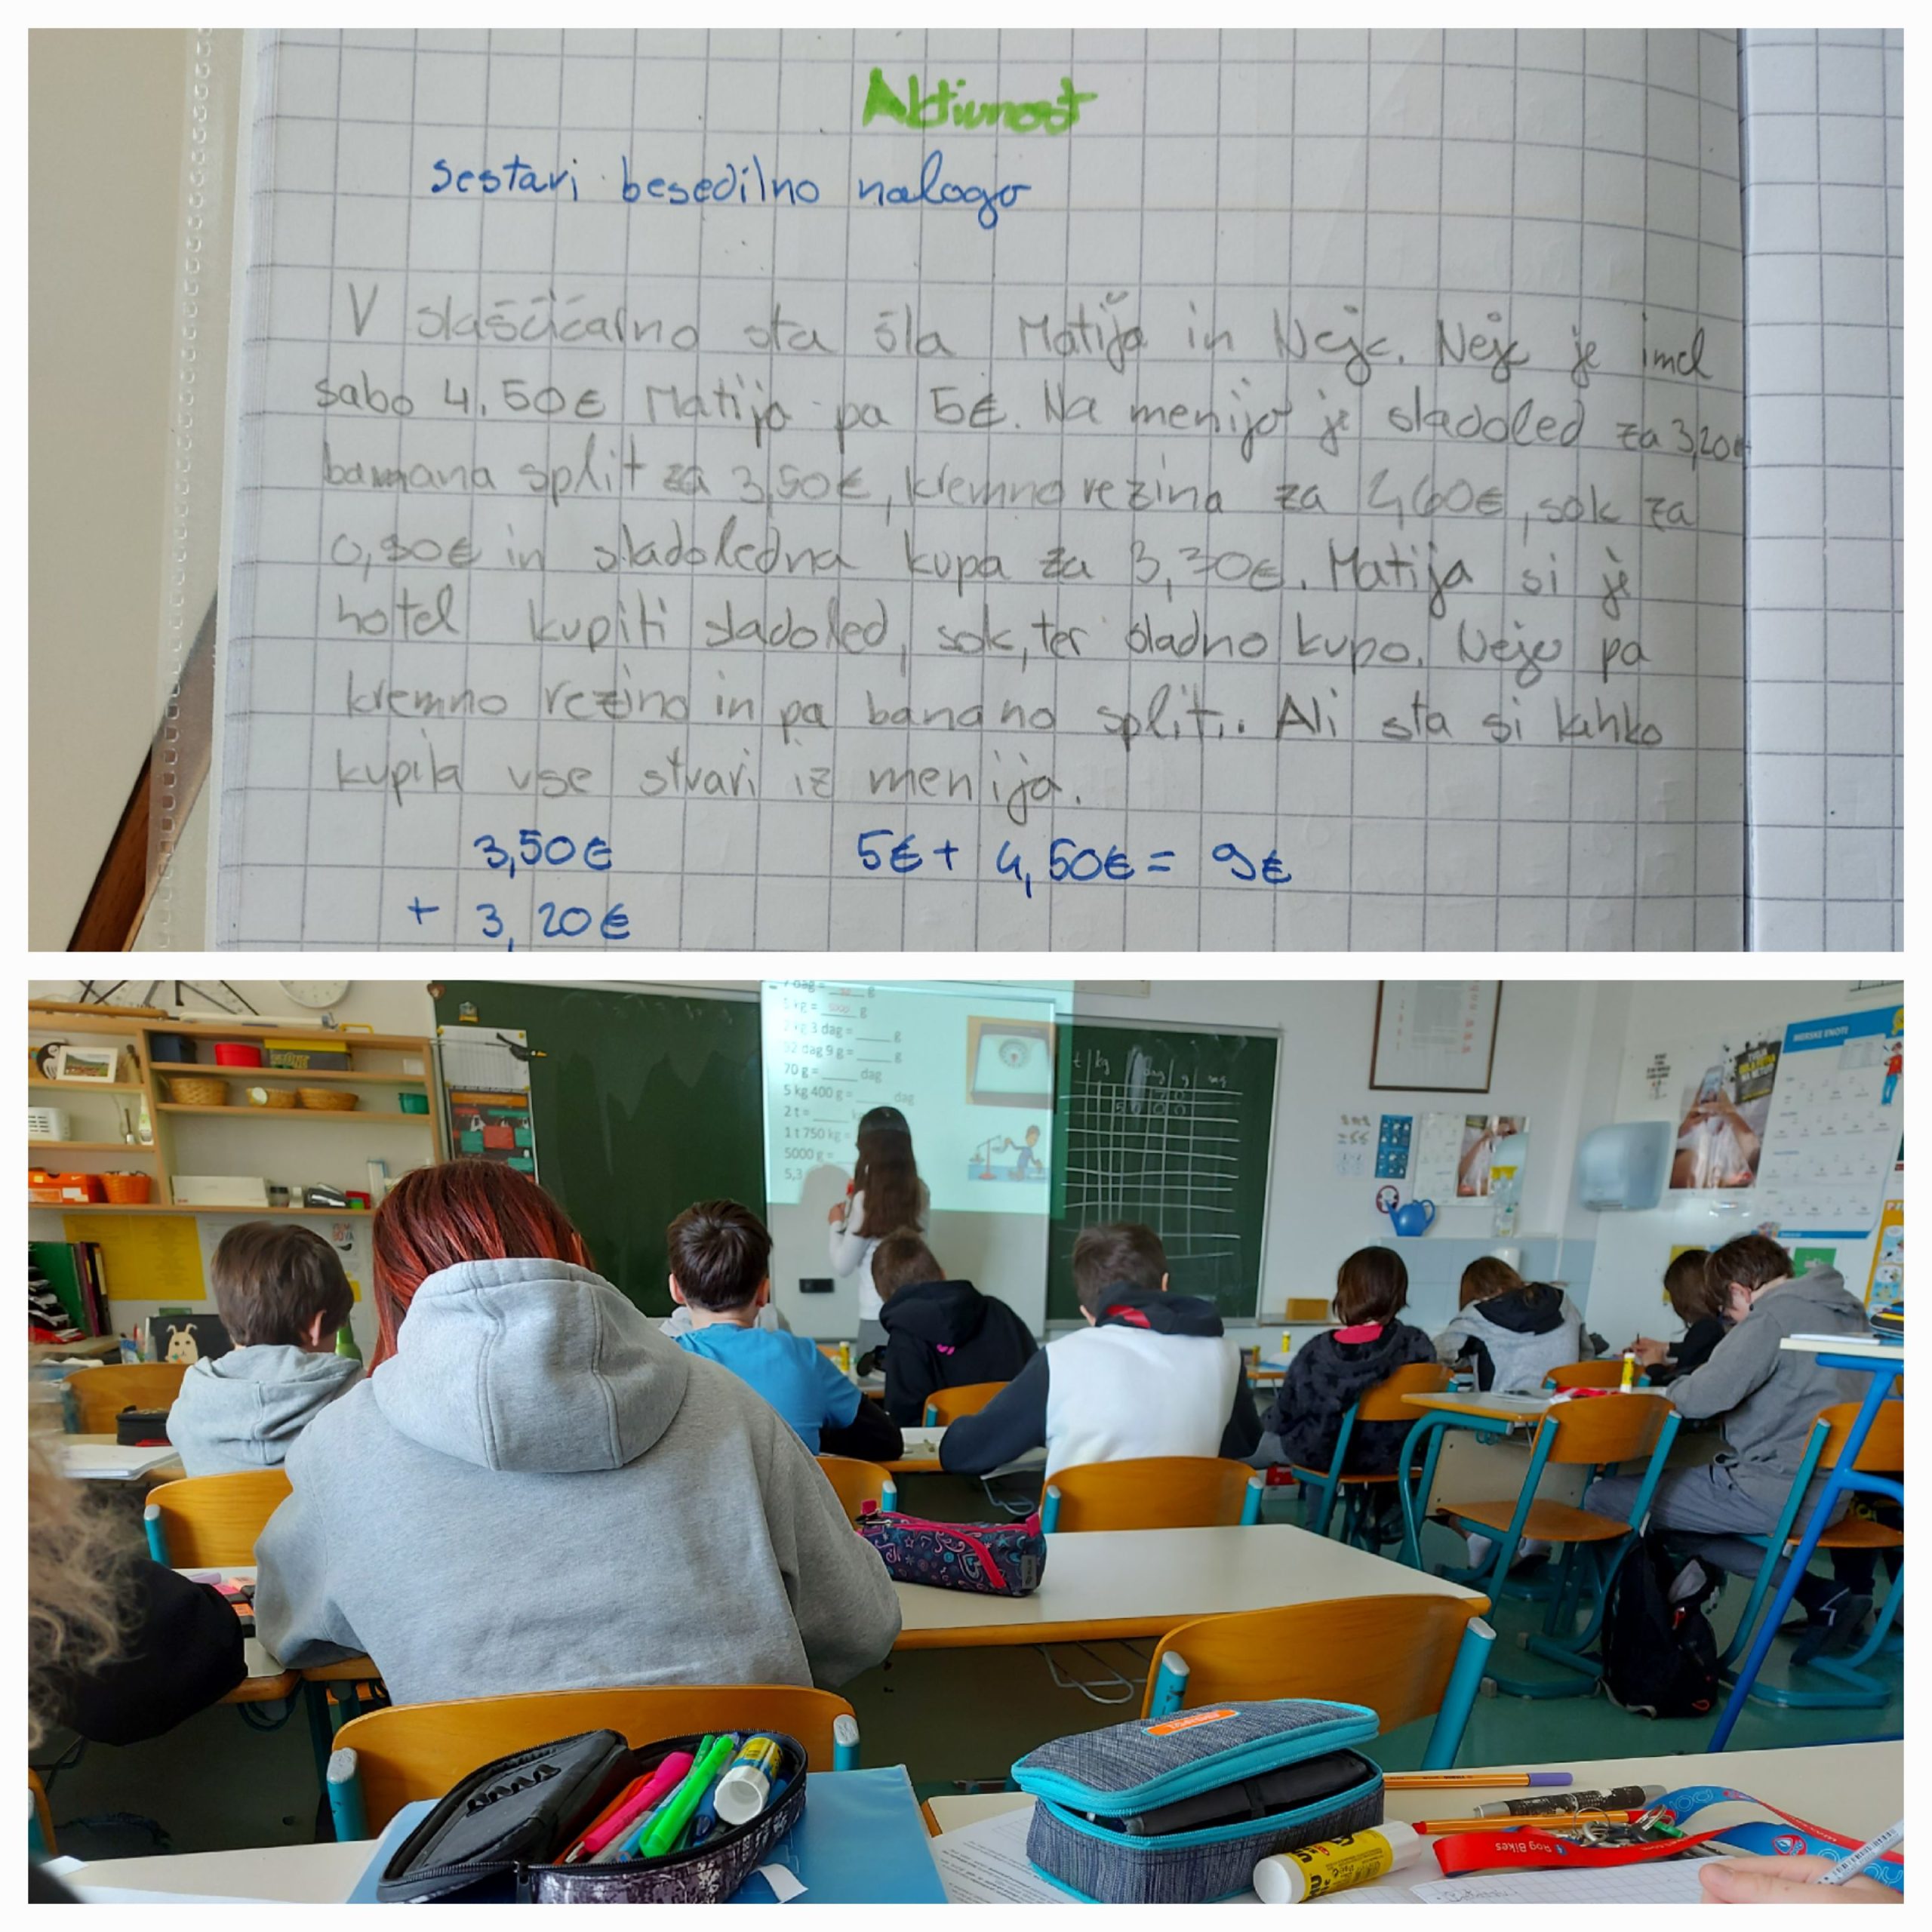 Aktivnost
sestavi besedilno nalogo
V slaščičarno sta šla Matija in Nejc. Nejc je imel
sabo 4,50€ Matija pa 5€. Na menijo je sladoled za 3,20€
banana split za 3,50€, kremno rezina za 2,60€, sok za
0,90€ in sladoledna kupa za 3,30€. Matija si je
hotel kupiti sladoled, sok, ter sladno kupo. Nejc pa
kremno rezino in pa banano split. Ali sta si lahko
kupila vse stvari iz menija.
3,50€ 5€ + 4,50€ = 9€
+ 3,20€
7 dag = g
5 kg = 5000 g
2 kg 3 dag = ____ g
92 dag 9 g = ____ g
70 g = ____ dag
5 kg 400 g = ____ dag
2 t = ____ k
1 t 750 kg =
5000 g =
5,3
t kg dag g mg
MERSKE ENOTE
Rog Bikes